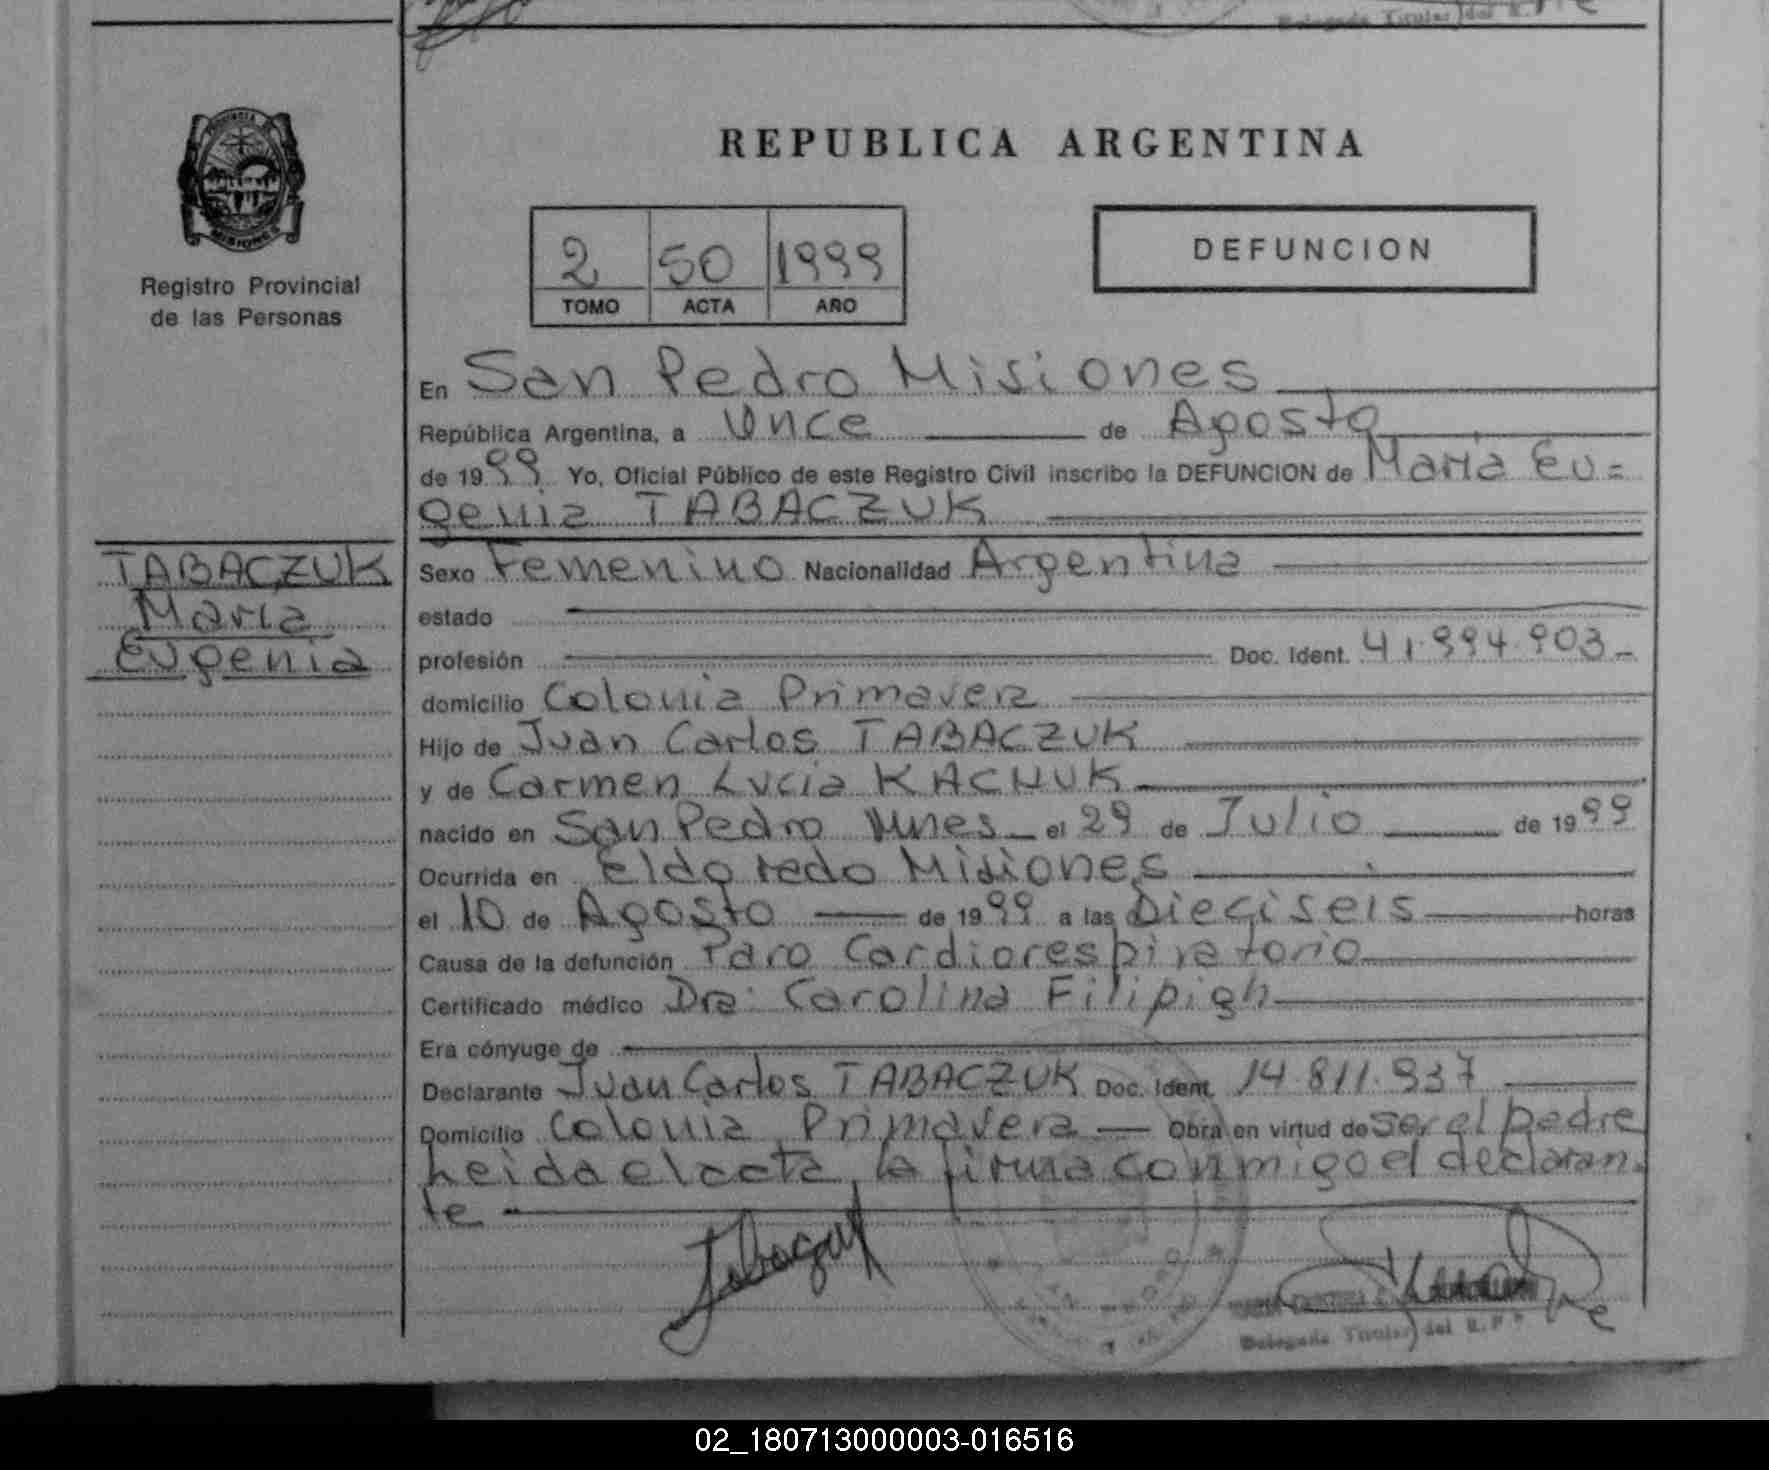 PROVINCIA DE
MISIONES
Registro Provincial
de las Personas
TABACZUK
Maria
Eugenia
Delegada Titular del R.
REPUBLICA ARGENTINA
2 50 1999
TOMO ACTA AÑO
DEFUNCION
En San Pedro Misiones
República Argentina, a Once de Agosto
de 1999 Yo, Oficial Público de este Registro Civil inscribo la DEFUNCION de Maria Eu=
genia TABACZUK
Sexo Femenino Nacionalidad Argentina
estado
profesión Doc. Ident. 41.994.903_
domicilio Colonia Primavera
Hijo de Juan Carlos TABACZUK
y de Carmen Lucia KACHUK
nacido en San Pedro Mnes_ el 29 de Julio de 1999
Ocurrida en Eldoredo Misiones
el 10 de Agosto de 1999 a las Dieciseis horas
Causa de la defunción Paro Cardiorespiratorio
Certificado médico Dra: Carolina Filipigh
Era cónyuge de
Declarante Juan Carlos TABACZUK Doc. Ident. 14.811.937
Domicilio Colonia Primavera Obra en virtud de ser el padre
heida el acta, la firma conmigo el declaran-
te
Tabaczuk
Delegada Titular del R.P.P
02_180713000003-016516